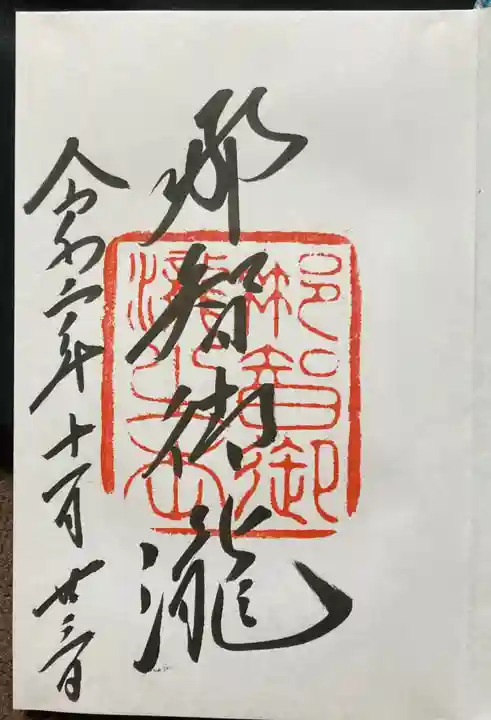 那智御瀧
令和二年十一月廿三日
那智御
瀧之